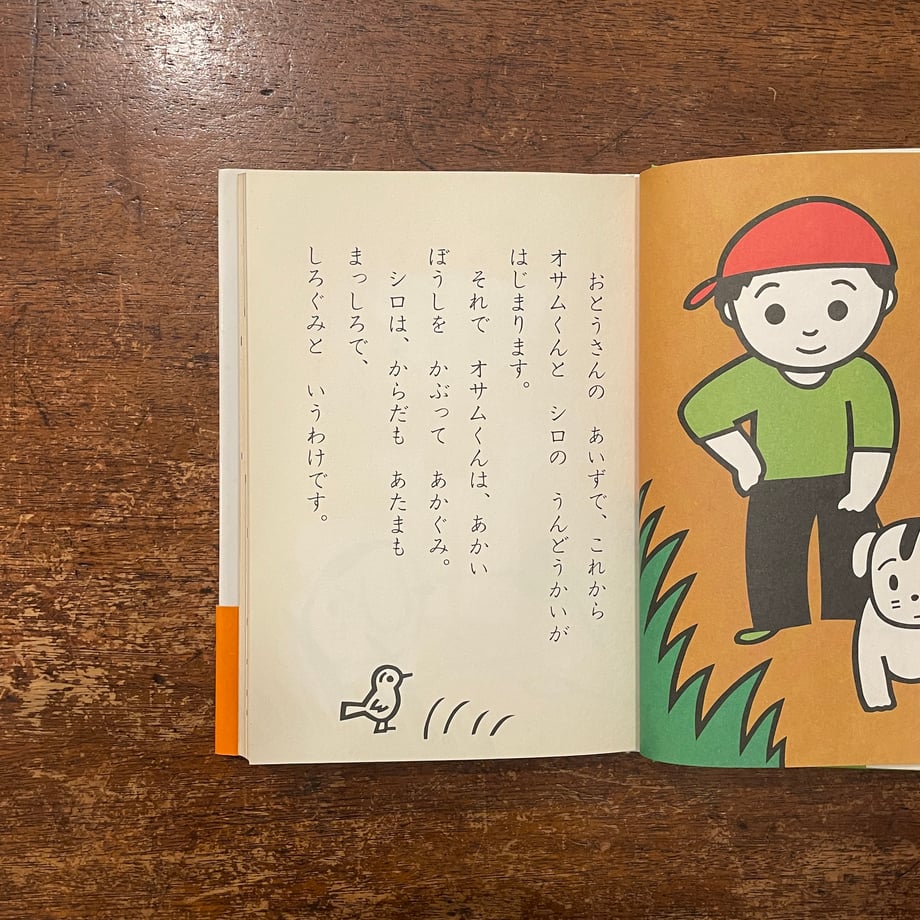 おとうさんの　あいずで、これから
オサムくんと　シロの　うんどうかいが
はじまります。
それで　オサムくんは、あかい
ぼうしを　かぶって　あかぐみ。
シロは、からだも　あたまも
まっしろで、
しろぐみと　いうわけです。